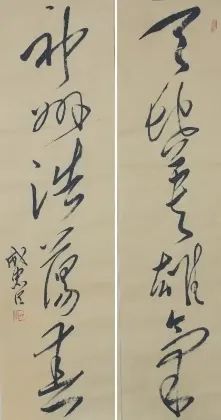 天地英雄氣
神州浩蕩春